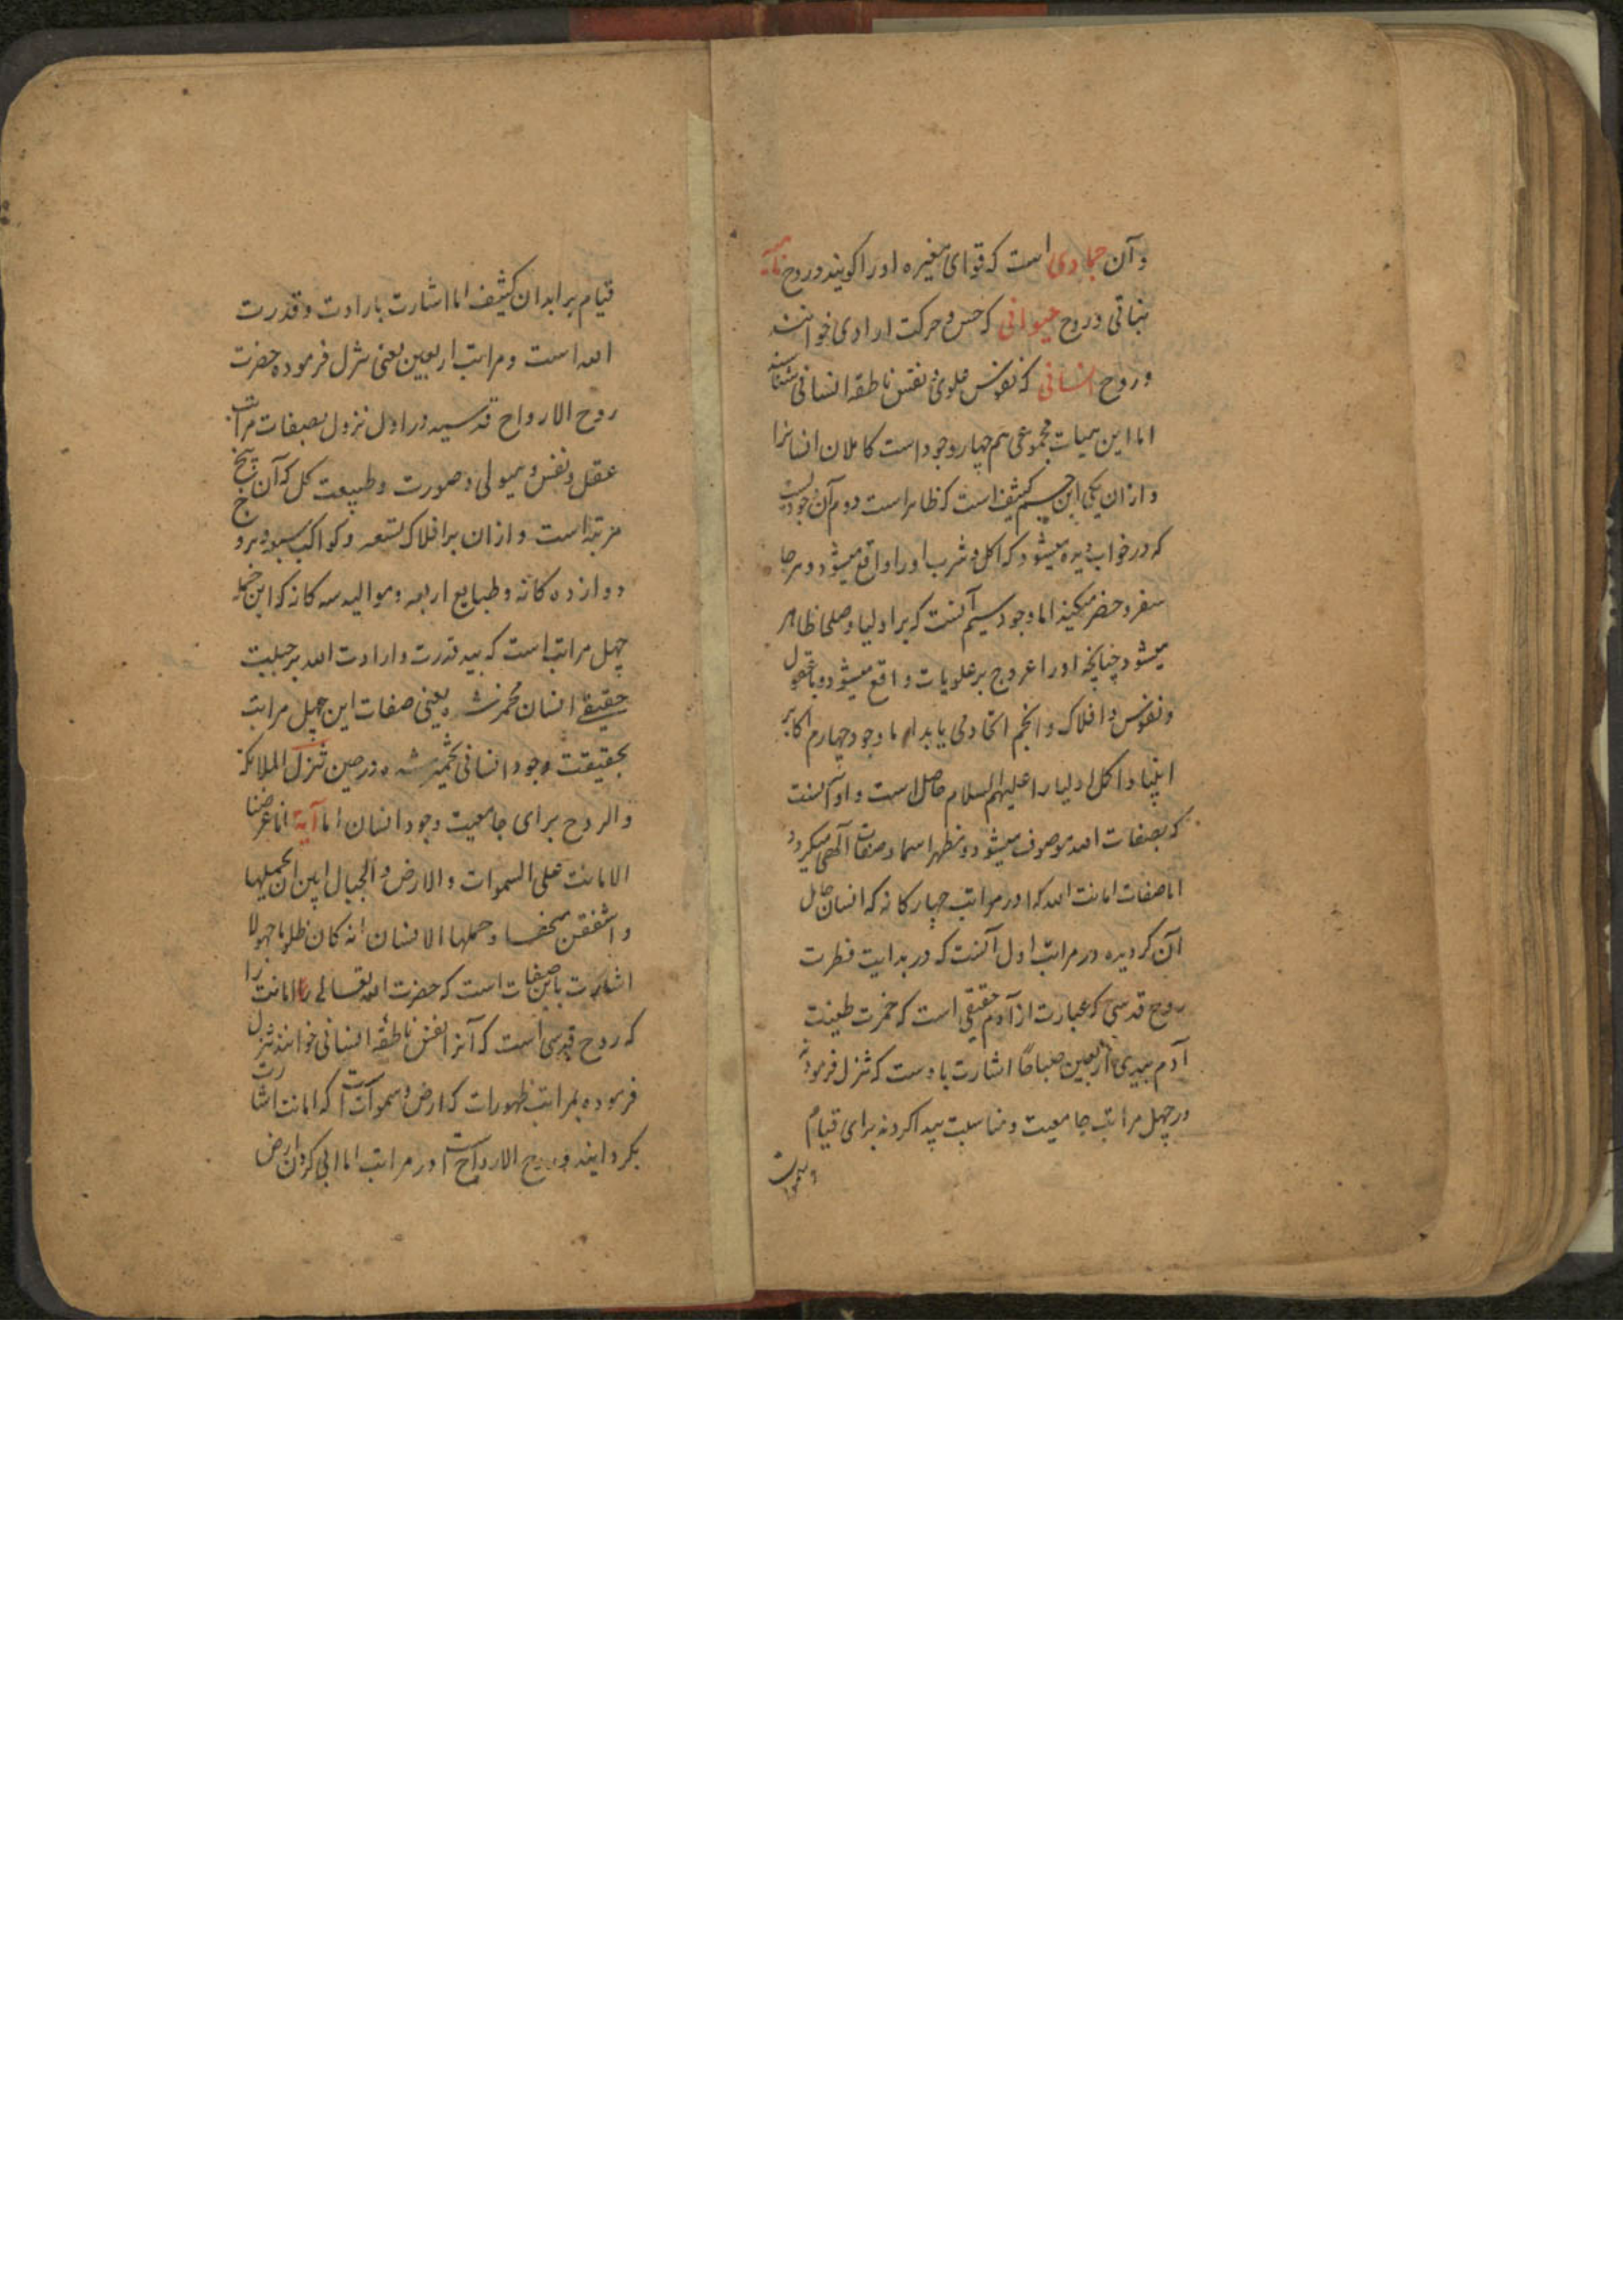 و آن جمادی است که قوای مغیره او را کویند و روح نامیه
نباتی و روح حیوانی که حس و حرکت ارادی خوانند
و روح انسانی که نفوس علوی نفس ناطقه انسانی شناسند
اما این هیات مجموعی هم چهار وجود است کاملان انسانرا
و ازان یکی این جسم کثیف است که ظاهر است دوم آن وجودیست
که در خواب دیده میشود که اکل و شرب او را واقع میشود و هرجا
سفر و حضر میکند اما وجود سیم آنست که بر اولیا و صلحا ظاهر
میشود چنانچه او را عروج بر علویات واقع میشود و با عقول
و نفوس و افلاک و انجم اتحاد می یابد اما وجود چهارم اکابر
انبیا و اکمل اولیا را علیهم السلام حاصل است و او آنست
که بصفات الله موصوف میشود و مظهر اسما و صفات آلهی میکردد
اما صفات امانت الله که اور مراتب چهار کانه که انسان حامل
آن کردیده در مراتب اول آنست که در بدایت فطرت
روح قدسی که عبارت از آدم حقیقی است که خمرت طینت
آدم بیدی اربعین صباحا اشارت باوست که تنزل فرموده
در چهل مراتب جامعیت و مناسبت پیدا کرده برای قیام
قیام بر ابدان کثیف اما اشارت بارادت و قدرت
الله است و مراتب اربعین یعنی تنزل فرموده حضرت
روح الارواح قدسیه در اول نزول بصفات مراتب
عقل و نفس و هیولی و صورت و طبیعت کل که آن پنج
مرتبه است و ازان بر افلاک تسعه و کواکب سبعه و بروج
دوازده کانه و طبایع اربعه و موالید سه کانه که این جمله
چهل مراتب است که بید قدرت و ارادت الله بر جبلیت
حقیقی انسان مخمر شده یعنی صفات این چهل مراتب
بحقیقت وجود انسانی تخمیر شده و در حین تنزل الملائکة
والروح برای جامعیت وجود انسان اما آیة انا عرضنا
الامانت علی السموات والارض والجبال ابین ان یحملنها
واشفقن منها وحملها الانسان انه کان ظلوما جهولا
اشارت باین صفات است که حضرت الله تعالی امانت را
که روح قدسی است که آنرا نفس ناطقه انسانی خوانند تنزل
فرموده بمراتب ظهورات که ارض و سموات است که امانت اشارت
بکردانید و روح الارواح است اور مراتب اما ابی کردن ارض